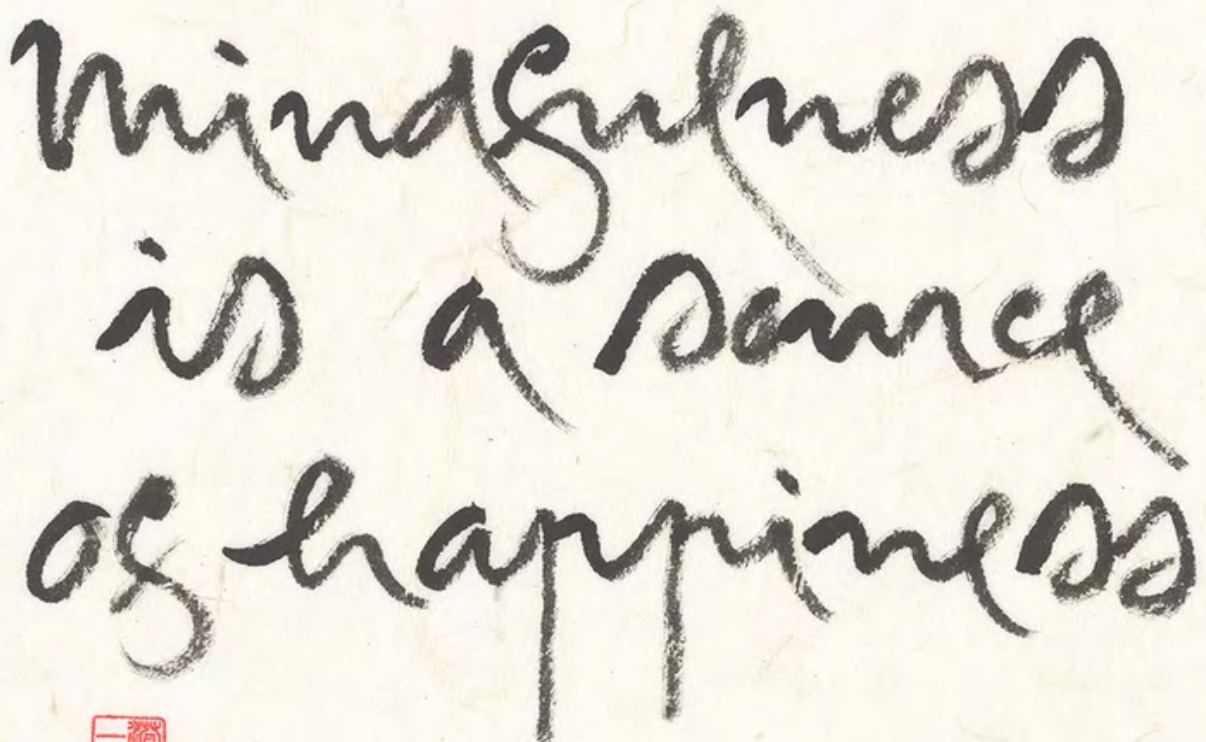 mindfulness
is a source
of happiness